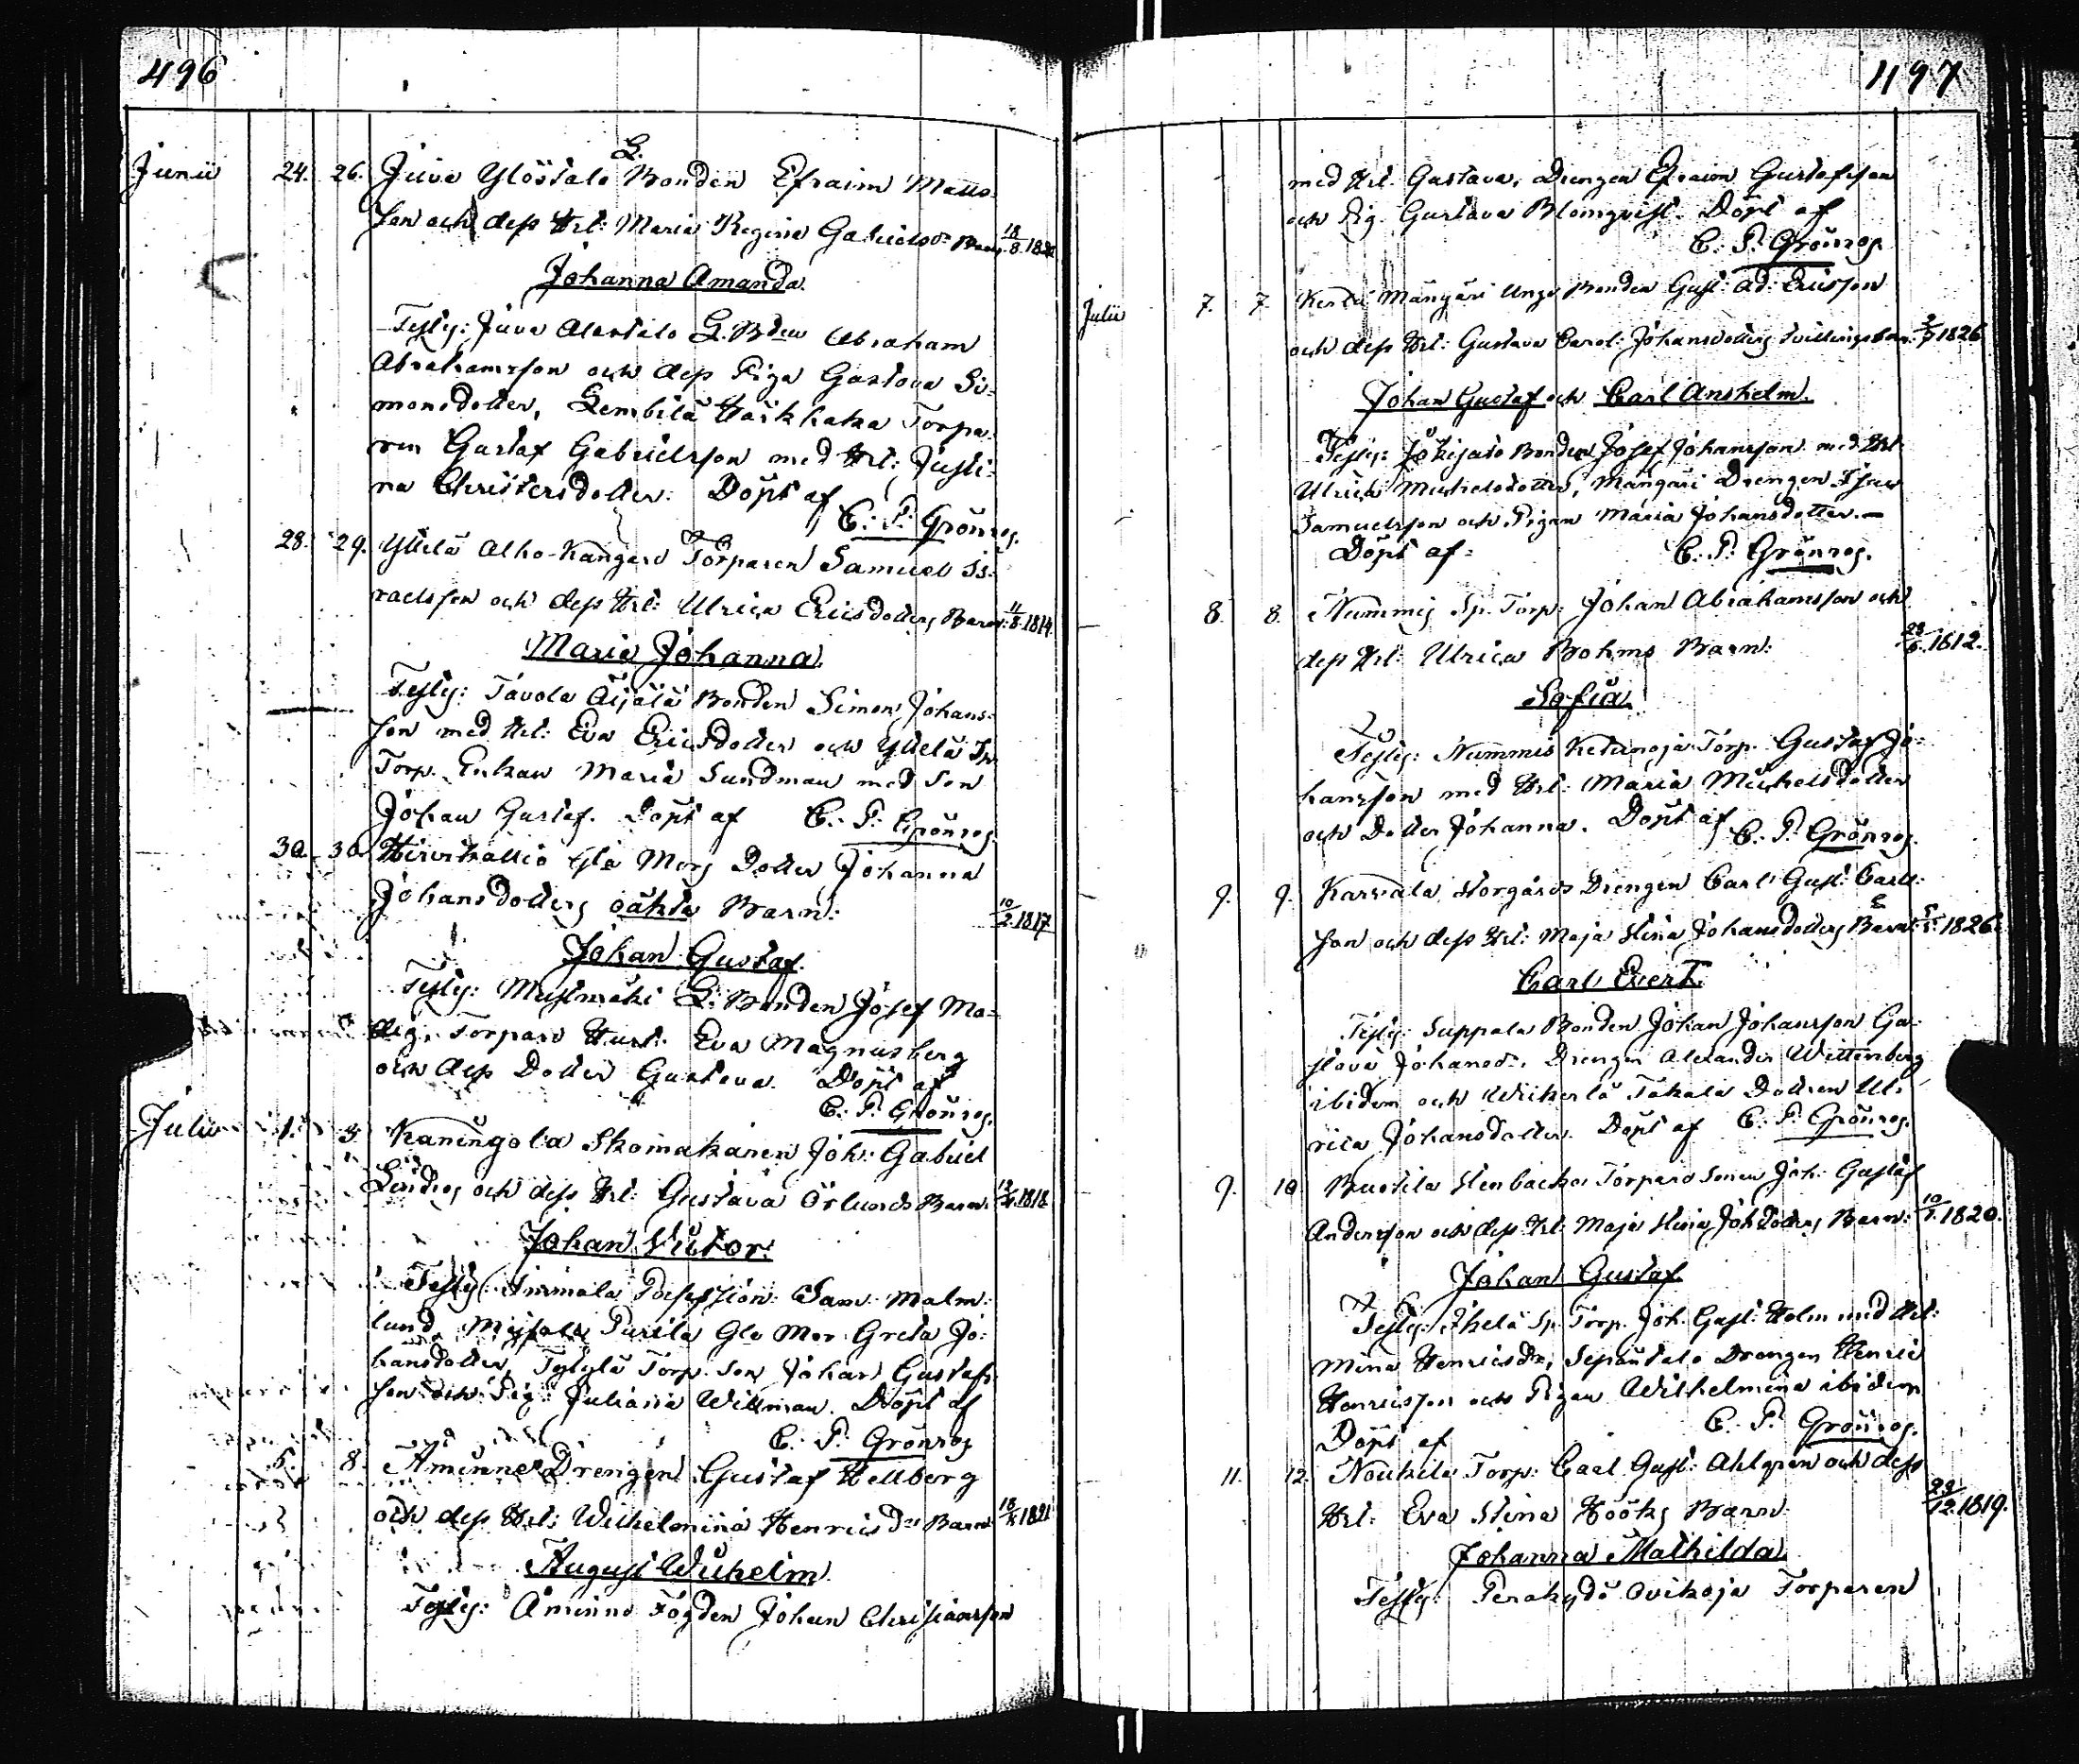 496
L.
Junii 24. 26. Juva Ylöstalo Bonden Efraim Matts-
son och dess Hst: Maria Regina Gabrielsdrs Barn: 18/8.18
Johanna Amanda.
Testes: Juva Alastalo L. Bden Abraham
Abrahamsson och dess Piga Gustava Si-
monsdotter, Torpa-
ren Gustaf Gabrielsson med Hst: Justi-
na Christersdotter. Döpt af
C. P. Grönros.
28. 29. Yllelä Alho-Kangas Torparen Samuel Is-
raelsson och dess Hst: Ulrica Ericsdotters Barn: 11/8.1814.
Maria Johanna.
Testes: Tavola Äijälä Bonden Simon Johans-
son med Hst: Eva Ericsdotter och Yllelä Sp
Torp. Enkan Maria Sundman med Son
Johan Gustaf. Döpt af C. P. Grönros.
30. 30. Hirvikallio Gla Mors Dotter Johanna
Johansdotters oäkta Barn: 10/2.1817
Johan Gustaf.
Testes: L. Bonden Josef Ma-
Torpars Hust: Eva Magnusberg
och dess Dotter Gustava. Döpt af
C. P. Grönros.
Julii 1. 3. Kaningola Skomakaren Joh: Gabriel
Lindros och dess Hst: Gustava Örlunds Barn: 1818
Johan Victor.
Testes: Sam: Malm-
lund, Purila Gla Mor Greta Jo-
hansdotter, Torp. Son Johan Gustafs-
son och Pig: Juliana Willman. Döpt af
C. P. Grönros
5. 8. Åminne Drengen Gustaf Hellberg
och dess Hst: Wilhelmina Henricsdrs Barn 1821
August Wilhelm.
Testes: Åminne Fogden Johan Christiansson
497
med Hst. Gustava, Drengen Efraim Gustafsson
och Pig. Gustava Blomqvist. Döpt af
C. P. Grönros.
Julii 7. 7. Mangari Unge Bonden Gust: Ad: Ericsson
och dess Hst: Gustava Carol: Johansdotters Tvillingsbarn: 1826
Johan Gustaf och Carl Anshelm.
Testes: Jokisalo Bonden Josef Johansson med Hst
Ulrica Michelsdotter, Mangari Drengen Isac
Samuelsson och Pigan Maria Johansdotter.—
Döpt af: C. P. Grönros.
8. 8. Nummis Sp. Torp: Johan Abrahamsson och
dess Hst: Ulrica Bohms Barn: 28/6.1812.
Sofia.
Testes: Nummis Ketunoja Torp. Gustaf Jo-
hansson med Hst: Maria Michelsdotter
och Dotter Johanna. Döpt af C. P. Grönros.
9. 9. Karvala Storgårds Drengen Carl Gust: Carls-
son och dess Hst: Maja Stina Johansdotters Barn: 1826.
Carl Evert.
Testes: Suppala Bonden Johan Johansson Gu-
stava Johansdr. Drengen Alexander Wittenberg
ibidem och Wiikerlä Takala Dottren Ul-
rica Johansdotter. Döpt af C. P. Grönros.
9. 10. Ruotila Stenbacka Torpars Sonen Joh: Gustaf
Andersson och dess Hst: Maja Stina Joh:Doters Barn: 10/1.1820.
Johan Gustaf.
Testes: Sp. Torp. Joh. Gust: Holm med Hst:
Mina Henricsdr, Drengen Henric
Henricsson och Pigan Wilhelmina ibidem
Döpt af C. P. Grönros.
11. 12. Torp: Carl Gust: Ahlgren och dess
Hst: Eva Stina Hööks Barn: 22/12.1819.
Johanna Mathilda.
Testes: Perakydö Ovikoja Torparen